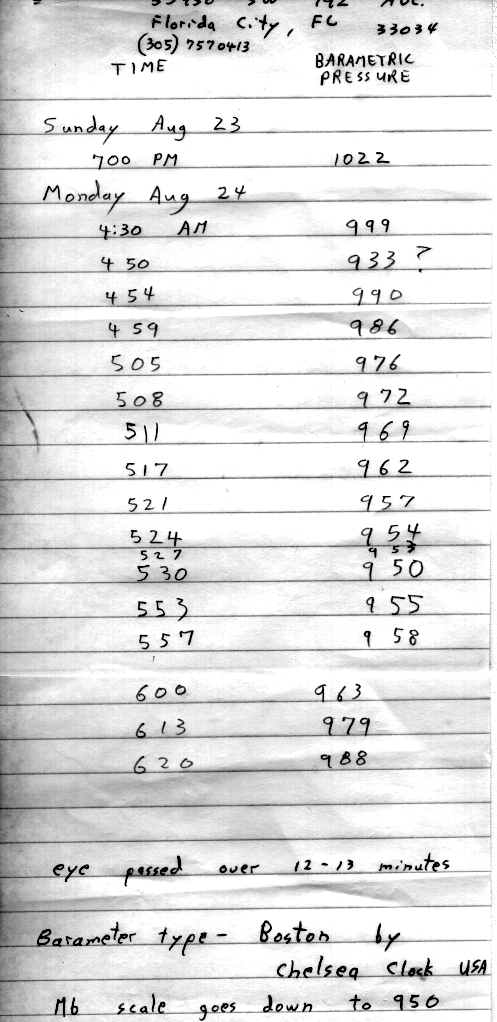 Florida City, FL 33034
(305) 7570413
TIME BARAMETRIC PRESSURE
Sunday Aug 23
700 PM 1022
Monday Aug 24
4:30 AM 999
4 50 933 ?
4 54 990
4 59 986
505 976
508 972
511 969
517 962
521 957
524 954
527 953
530 950
553 955
557 958
600 963
613 979
620 988
eye passed over 12-13 minutes
Barameter type - Boston by
Chelsea Clock USA
Mb scale goes down to 950